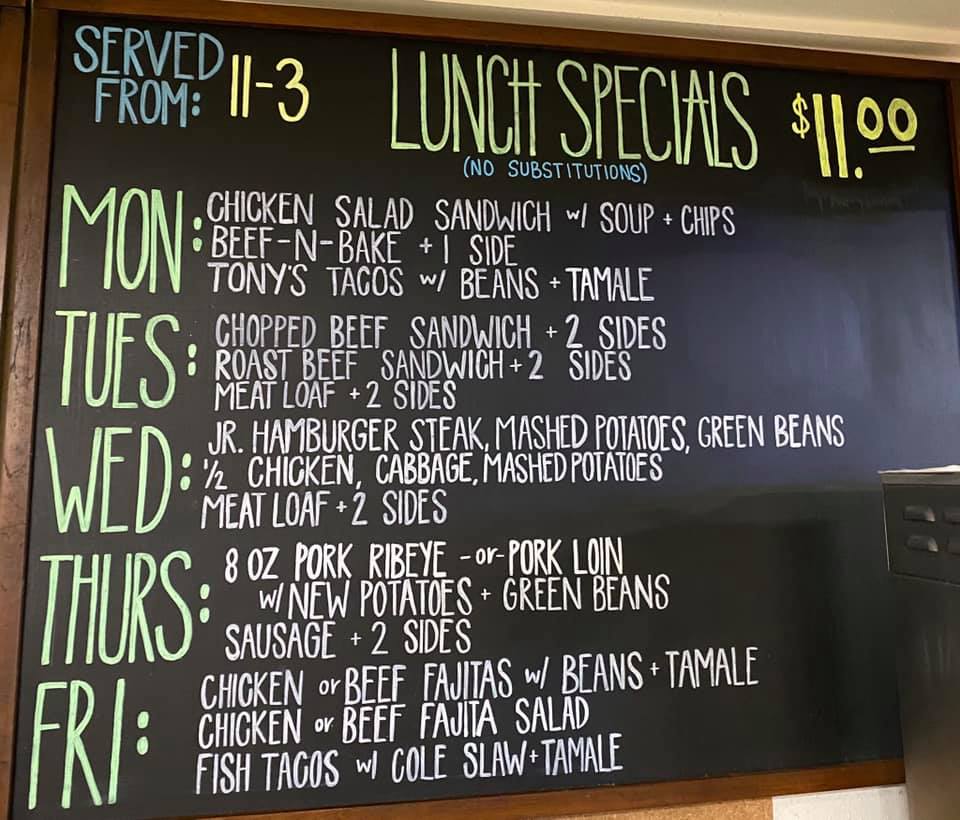 SERVED FROM: 11-3
LUNCH SPECIALS
$11.00
(NO SUBSTITUTIONS)
MON: CHICKEN SALAD SANDWICH w/ SOUP + CHIPS
BEEF-N-BAKE + 1 SIDE
TONY'S TACOS w/ BEANS + TAMALE
TUES: CHOPPED BEEF SANDWICH + 2 SIDES
ROAST BEEF SANDWICH + 2 SIDES
MEAT LOAF + 2 SIDES
WED: JR. HAMBURGER STEAK, MASHED POTATOES, GREEN BEANS
1/2 CHICKEN, CABBAGE, MASHED POTATOES
MEAT LOAF + 2 SIDES
THURS: 8 OZ PORK RIBEYE -or- PORK LOIN
w/ NEW POTATOES + GREEN BEANS
SAUSAGE + 2 SIDES
FRI: CHICKEN or BEEF FAJITAS w/ BEANS + TAMALE
CHICKEN or BEEF FAJITA SALAD
FISH TACOS w/ COLE SLAW + TAMALE